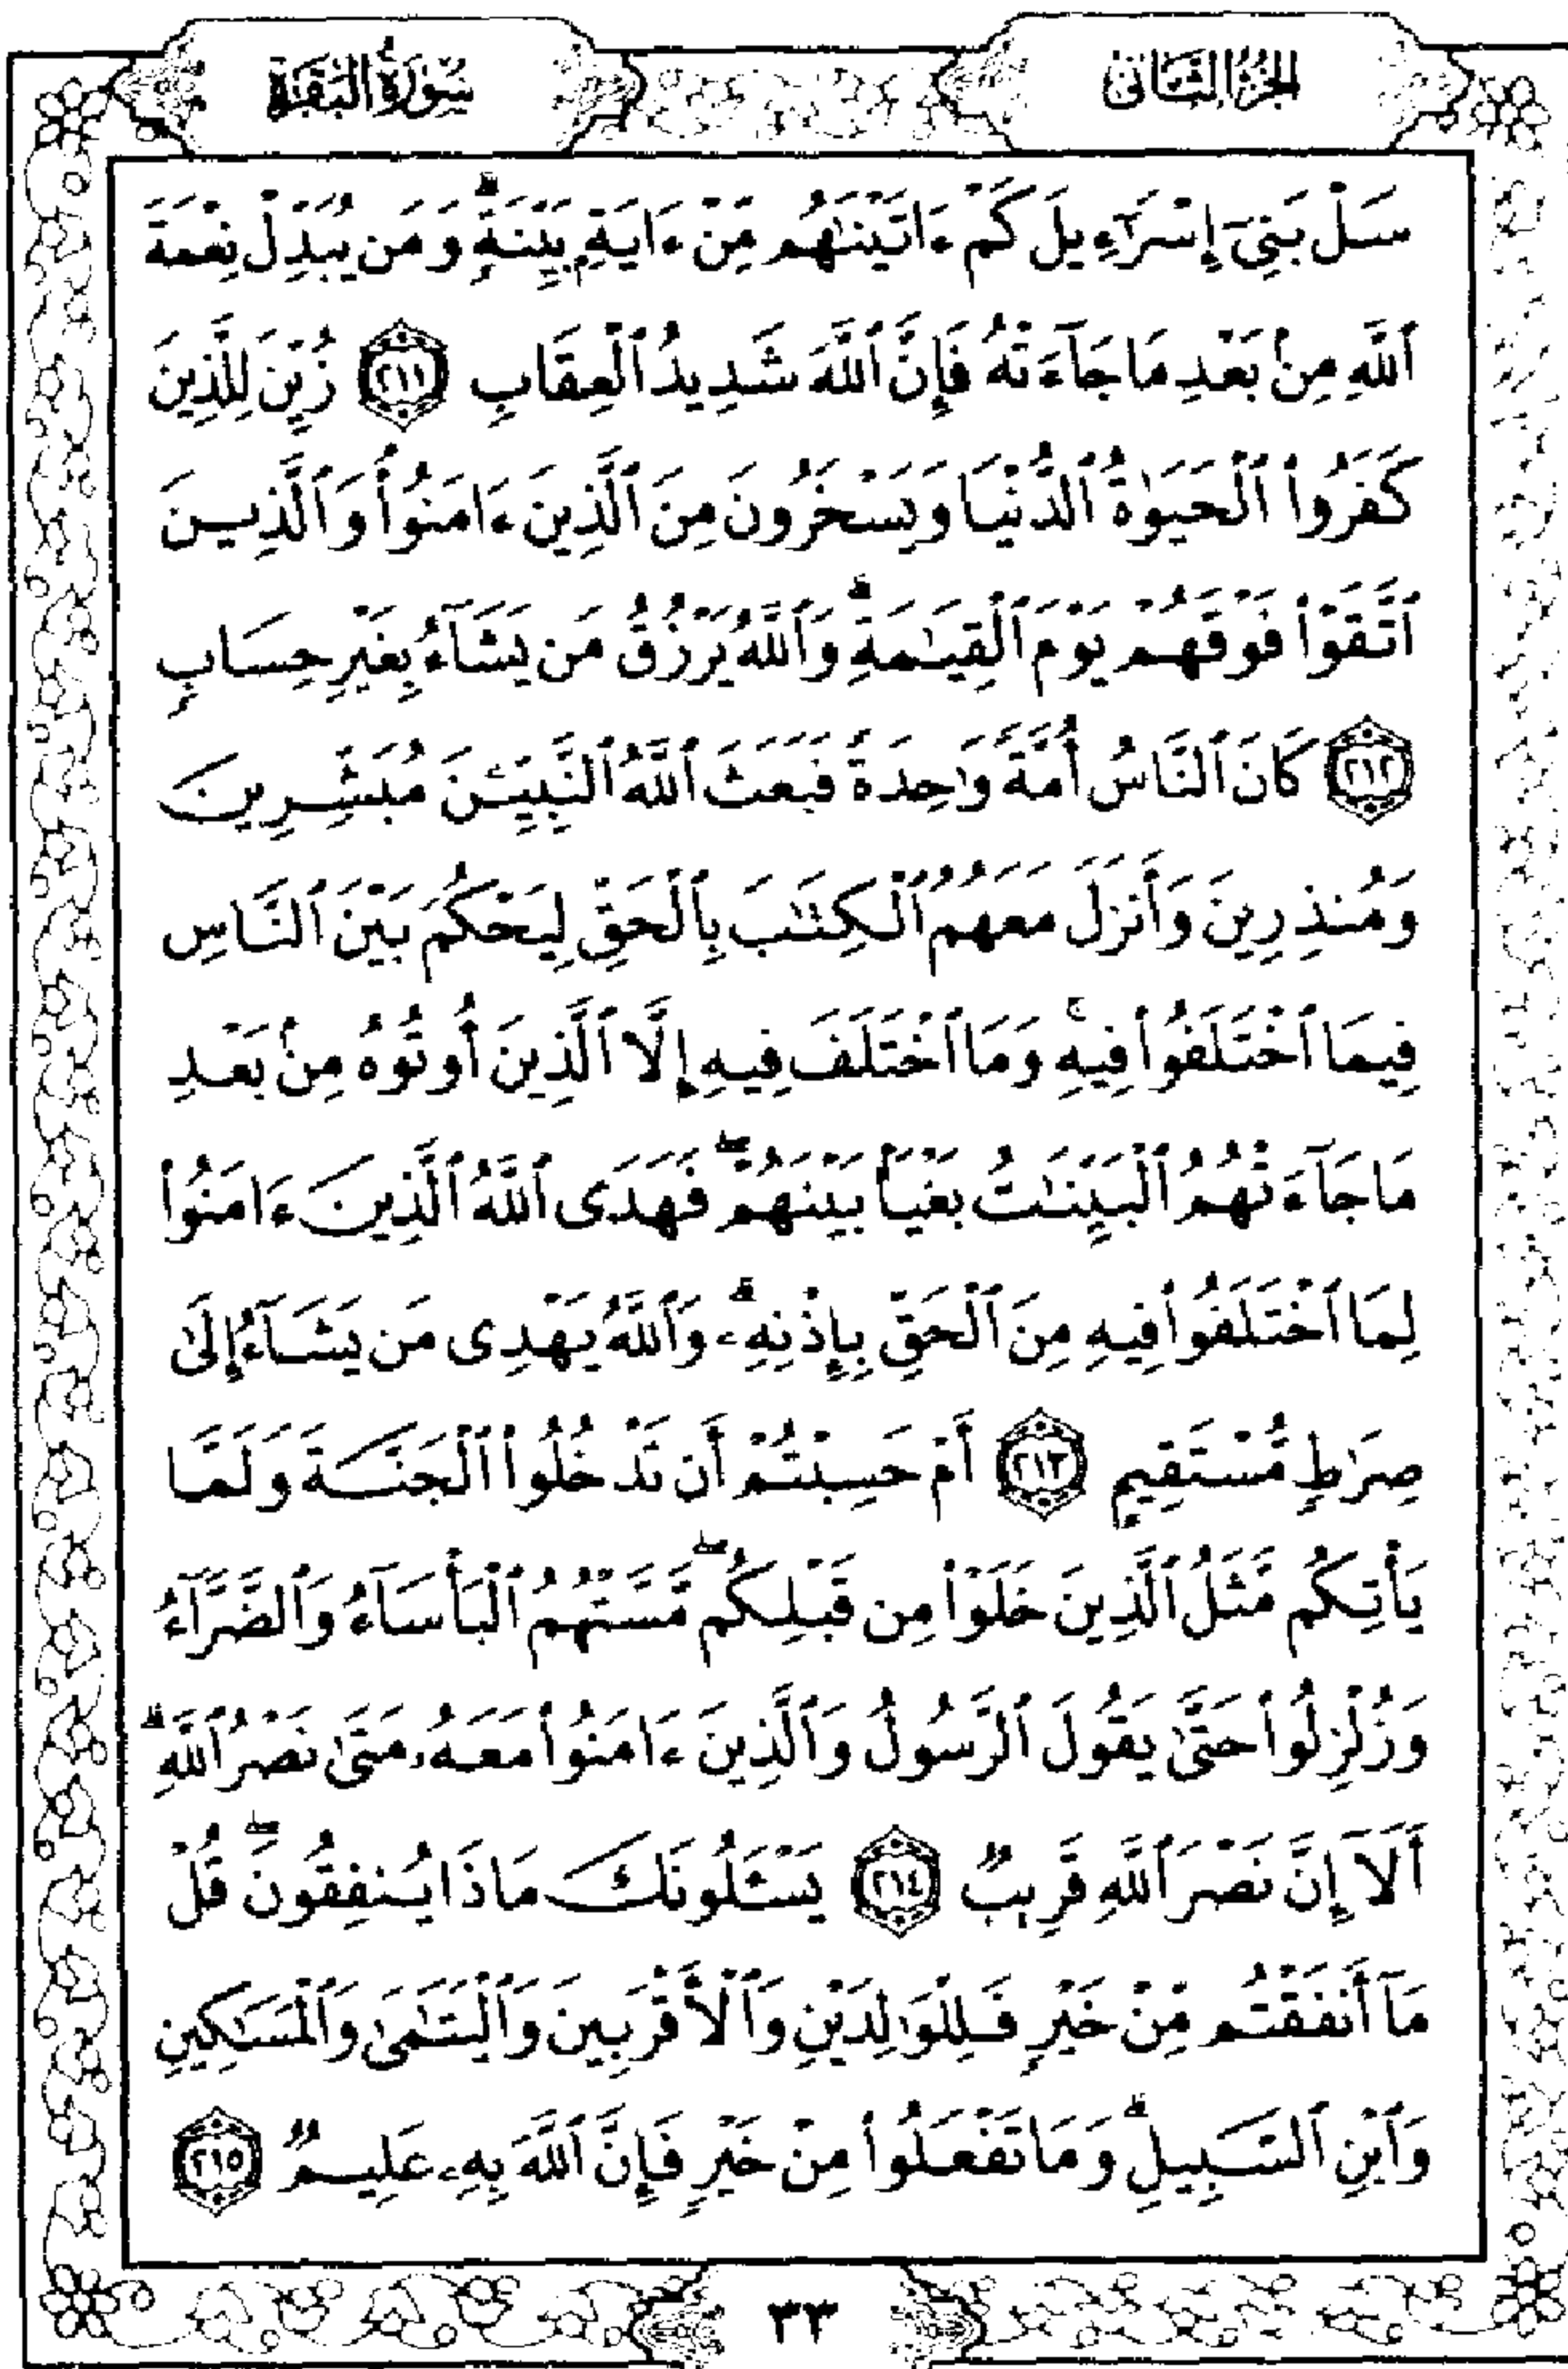 الجزء الثاني
سورة البقرة
سَلْ بَنِىٓ إِسْرَٰٓءِيلَ كَمْ ءَاتَيْنَٰهُم مِّنْ ءَايَةٍۭ بَيِّنَةٍۗ وَمَن يُبَدِّلْ نِعْمَةَ
ٱللَّهِ مِنۢ بَعْدِ مَا جَآءَتْهُ فَإِنَّ ٱللَّهَ شَدِيدُ ٱلْعِقَابِ ٢١١ زُيِّنَ لِلَّذِينَ
كَفَرُوا۟ ٱلْحَيَوٰةُ ٱلدُّنْيَا وَيَسْخَرُونَ مِنَ ٱلَّذِينَ ءَامَنُوا۟ۘ وَٱلَّذِينَ
ٱتَّقَوْا۟ فَوْقَهُمْ يَوْمَ ٱلْقِيَٰمَةِۗ وَٱللَّهُ يَرْزُقُ مَن يَشَآءُ بِغَيْرِ حِسَابٍ
٢١٢ كَانَ ٱلنَّاسُ أُمَّةً وَٰحِدَةً فَبَعَثَ ٱللَّهُ ٱلنَّبِيِّـۧنَ مُبَشِّرِينَ
وَمُنذِرِينَ وَأَنزَلَ مَعَهُمُ ٱلْكِتَٰبَ بِٱلْحَقِّ لِيَحْكُمَ بَيْنَ ٱلنَّاسِ
فِيمَا ٱخْتَلَفُوا۟ فِيهِۚ وَمَا ٱخْتَلَفَ فِيهِ إِلَّا ٱلَّذِينَ أُوتُوهُ مِنۢ بَعْدِ
مَا جَآءَتْهُمُ ٱلْبَيِّنَٰتُ بَغْيًۢا بَيْنَهُمْۖ فَهَدَى ٱللَّهُ ٱلَّذِينَ ءَامَنُوا۟
لِمَا ٱخْتَلَفُوا۟ فِيهِ مِنَ ٱلْحَقِّ بِإِذْنِهِۦۗ وَٱللَّهُ يَهْدِى مَن يَشَآءُ إِلَىٰ
صِرَٰطٍ مُّسْتَقِيمٍ ٢١٣ أَمْ حَسِبْتُمْ أَن تَدْخُلُوا۟ ٱلْجَنَّةَ وَلَمَّا
يَأْتِكُم مَّثَلُ ٱلَّذِينَ خَلَوْا۟ مِن قَبْلِكُمۖ مَّسَّتْهُمُ ٱلْبَأْسَآءُ وَٱلضَّرَّآءُ
وَزُلْزِلُوا۟ حَتَّىٰ يَقُولَ ٱلرَّسُولُ وَٱلَّذِينَ ءَامَنُوا۟ مَعَهُۥ مَتَىٰ نَصْرُ ٱللَّهِۗ
أَلَآ إِنَّ نَصْرَ ٱللَّهِ قَرِيبٌ ٢١٤ يَسْـَٔلُونَكَ مَاذَا يُنفِقُونَۖ قُلْ
مَآ أَنفَقْتُم مِّنْ خَيْرٍ فَلِلْوَٰلِدَيْنِ وَٱلْأَقْرَبِينَ وَٱلْيَتَٰمَىٰ وَٱلْمَسَٰكِينِ
وَٱبْنِ ٱلسَّبِيلِۗ وَمَا تَفْعَلُوا۟ مِنْ خَيْرٍ فَإِنَّ ٱللَّهَ بِهِۦ عَلِيمٌ ٢١٥
٣٣